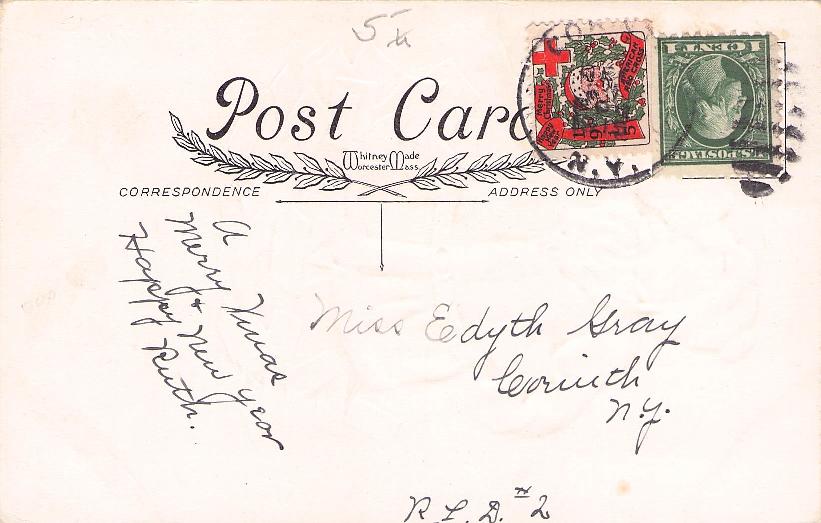 5
Post Card
Whitney Made
Worcester Mass
CORRESPONDENCE
ADDRESS ONLY
Merry Christmas
AMERICAN RED CROSS
1 CENT 1
U.S. POSTAGE
N.Y.
A
Merry Xmas
& New Year
Happy
Ruth.
Miss Edyth Gray
Corinth
N.Y.
R.F.D. #2